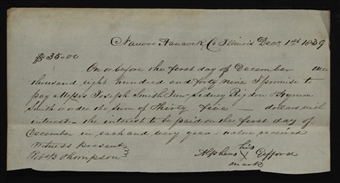 Nauvoo Hancock Co Illinois Decr 1st 1839
$35.00
On or before the first day of December one
thousand eight hundred and forty nine I promise to
pay Messrs Joseph Smith Junr Sidney Rigdon & Hyrum
Smith order the sum of Thirty five — dollars with
interest – the interest to be paid on the first day of
December in each and every year – value received
Witness present
Robt B Thompson
Alpheus his X mark Gifford